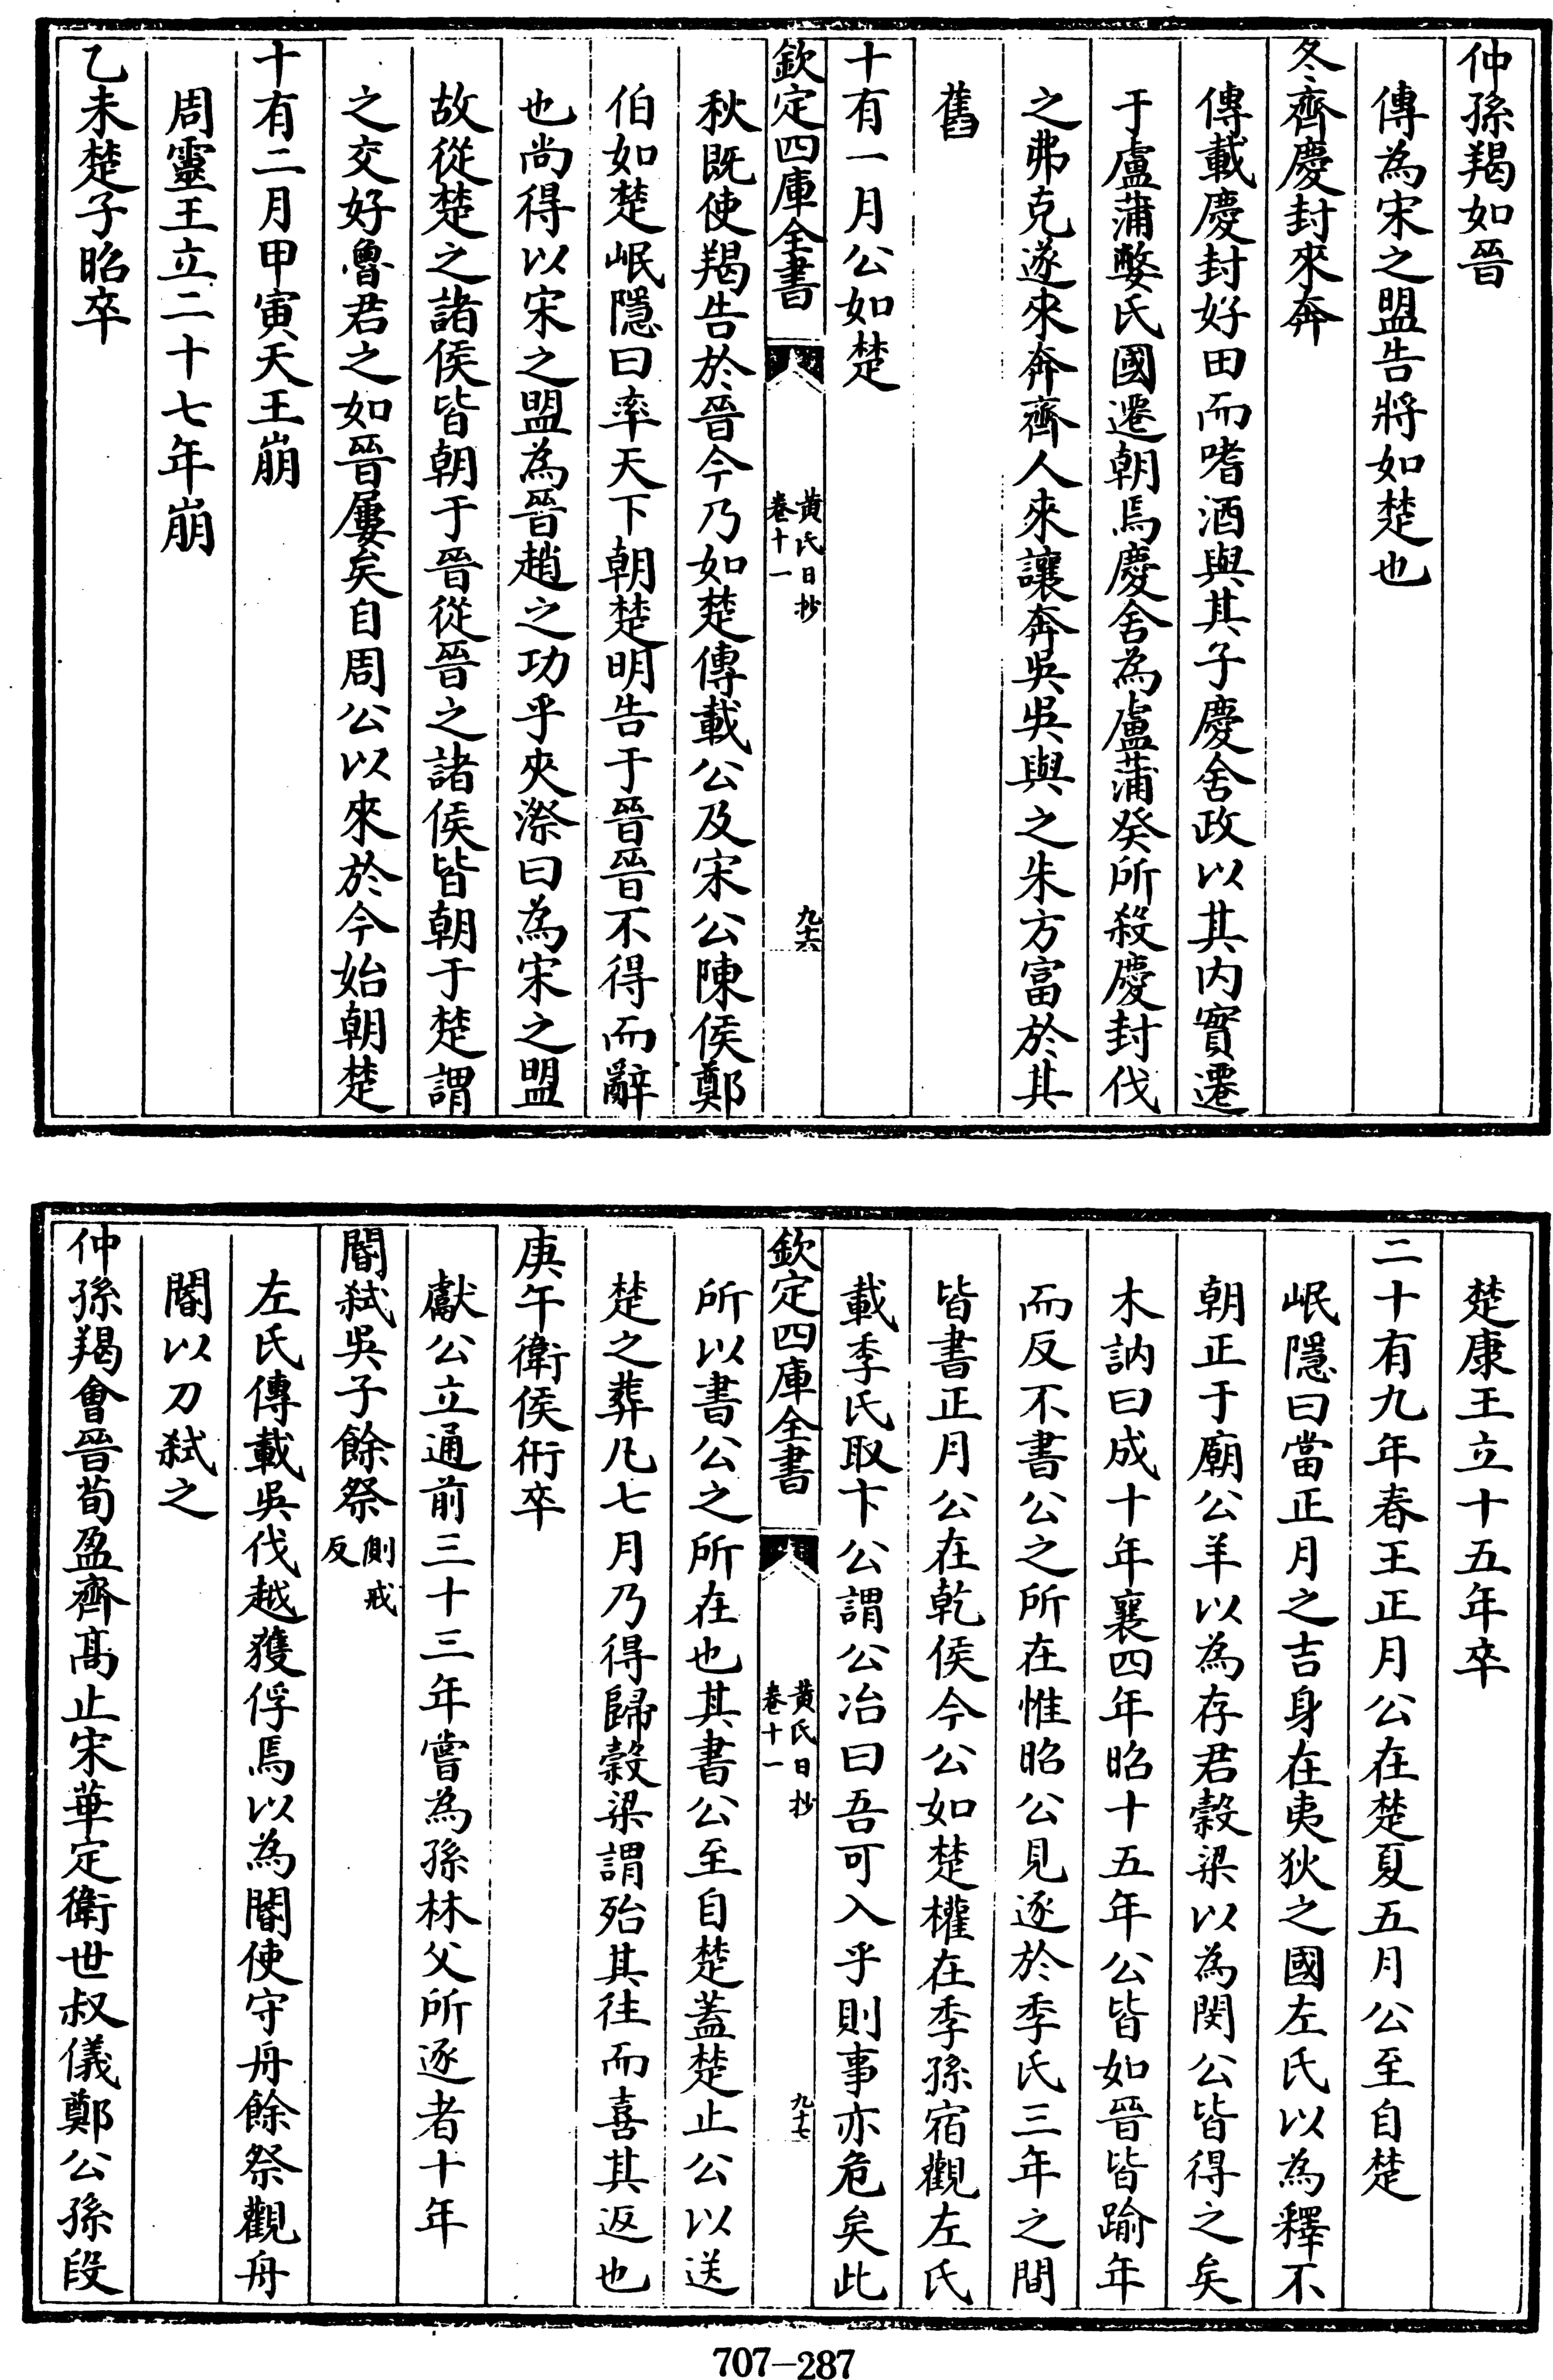 仲孫羯如晉
傳為宋之盟告將如楚也
冬齊慶封來奔
傳載慶封好田而嗜酒與其子慶舍政以其内實遷
于盧蒲嫳氏國遷朝焉慶舍為盧蒲癸所殺慶封伐
之弗克遂來奔齊人來讓奔吳吳與之朱方富於其
舊
十有一月公如楚
欽定四庫全書
黄氏日抄
卷十一
九十六
秋既使羯告於晉今乃如楚傳載公及宋公陳侯鄭
伯如楚岷隱曰率天下朝楚明告于晉晉不得而辭
也尚得以宋之盟為晉趙之功乎夾漈曰為宋之盟
故從楚之諸侯皆朝于晉從晉之諸侯皆朝于楚謂
之交好魯君之如晉屢矣自周公以來於今始朝楚
十有二月甲寅天王崩
周靈王立二十七年崩
乙未楚子昭卒
楚康王立十五年卒
二十有九年春王正月公在楚夏五月公至自楚
岷隱曰當正月之吉身在夷狄之國左氏以為釋不
朝正于廟公羊以為存君穀梁以為閔公皆得之矣
木訥曰成十年襄四年昭十五年公皆如晉皆踰年
而反不書公之所在惟昭公見逐於季氏三年之間
皆書正月公在乾侯今公如楚權在季孫宿觀左氏
載季氏取卞公謂公冶曰吾可入乎則事亦危矣此
欽定四庫全書
黄氏日抄
卷十一
九十七
所以書公之所在也其書公至自楚蓋楚止公以送
楚之葬凡七月乃得歸穀梁謂殆其往而喜其返也
庚午衛侯衎卒
獻公立通前三十三年嘗為孫林父所逐者十年
閽弑吳子餘祭側戒反
左氏傳載吳伐越獲俘焉以為閽使守舟餘祭觀舟
閽以刀弑之
仲孫羯會晉荀盈齊髙止宋華定衛世叔儀鄭公孫段
707—287